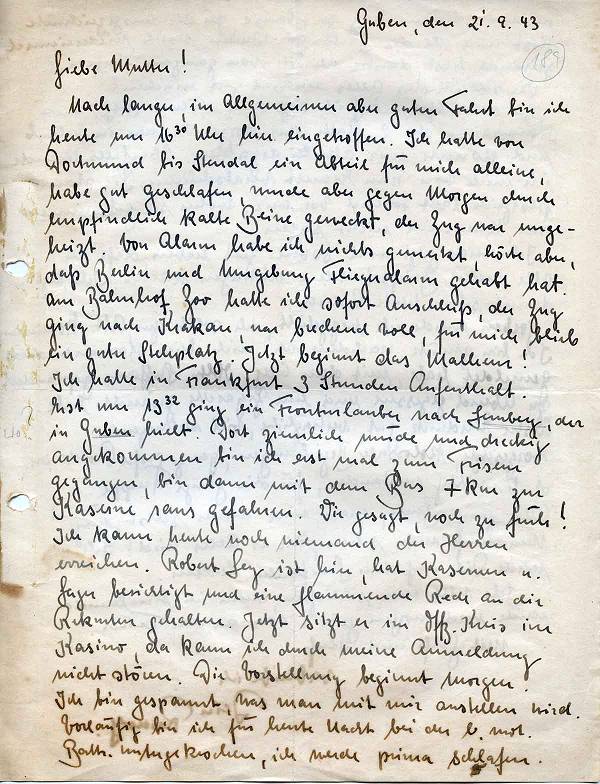 Guben, den 21.9.43
189
Liebe Mutter!
Nach langer, im Allgemeinen aber guten Fahrt bin ich
heute um 16³⁰ Uhr hier eingetroffen. Ich hatte von
Dortmund bis Stendal ein Abteil für mich alleine,
habe gut geschlafen, wurde aber gegen Morgen durch
empfindlich kalte Beine geweckt, der Zug war unge-
heizt. Von Alarm habe ich nichts gemerkt, hörte aber,
daß Berlin und Umgebung Fliegeralarm gehabt hat.
Am Bahnhof Zoo hatte ich sofort Anschluß, der Zug
ging nach Krakau, war brechend voll, für mich blieb
ein guter Stehplatz. Jetzt beginnt das Malheur!
Ich hatte in Frankfurt 3 Stunden Aufenthalt.
Erst um 13³² ging ein Fronturlauber nach Lemberg, der
in Guben hielt. Dort ziemlich müde und dreckig
angekommen bin ich erst mal zum Frisör
gegangen, bin dann mit dem Bus 7 km zur
Kaserne raus gefahren. Wie gesagt, noch zu früh!
Ich kann heute noch niemand der Herren
erreichen. Robert Ley ist hier, hat Kasernen u.
Lager besichtigt und eine flammende Rede an die
Rekruten gehalten. Jetzt sitzt er im Offz. Kreis im
Kasino, da kann ich durch meine Anmeldung
nicht stören. Die Vorstellung beginnt morgen.
Ich bin gespannt, was man mit mir anstellen wird.
Vorläufig bin ich für heute Nacht bei der mot.
Battr. untergekrochen, ich werde prima schlafen.